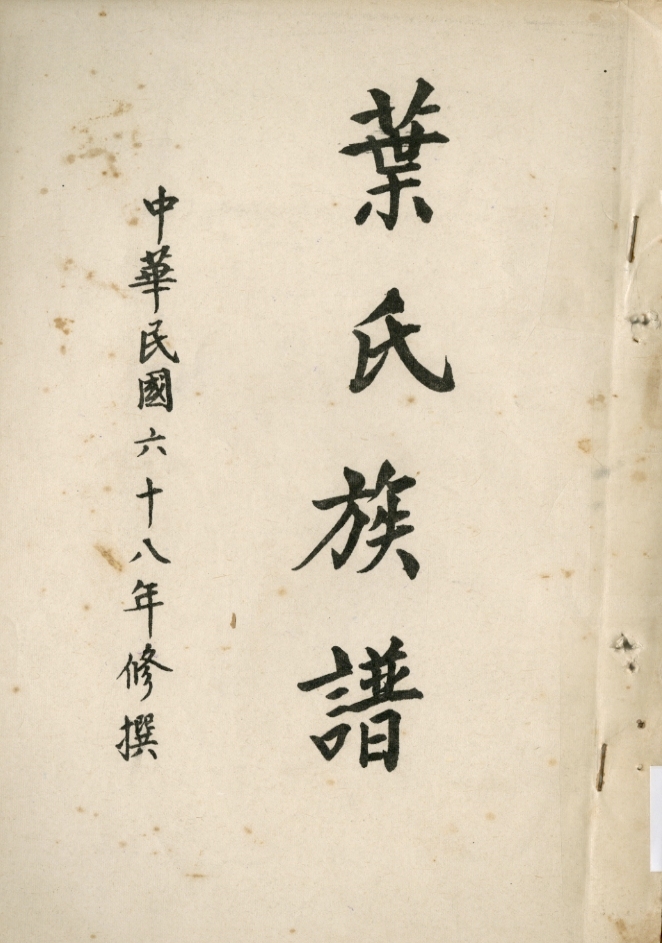 葉氏族譜
中華民國六十八年修撰